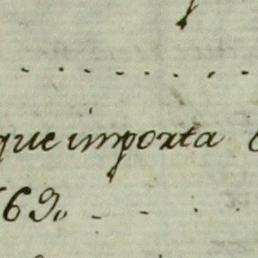 que importa
69.